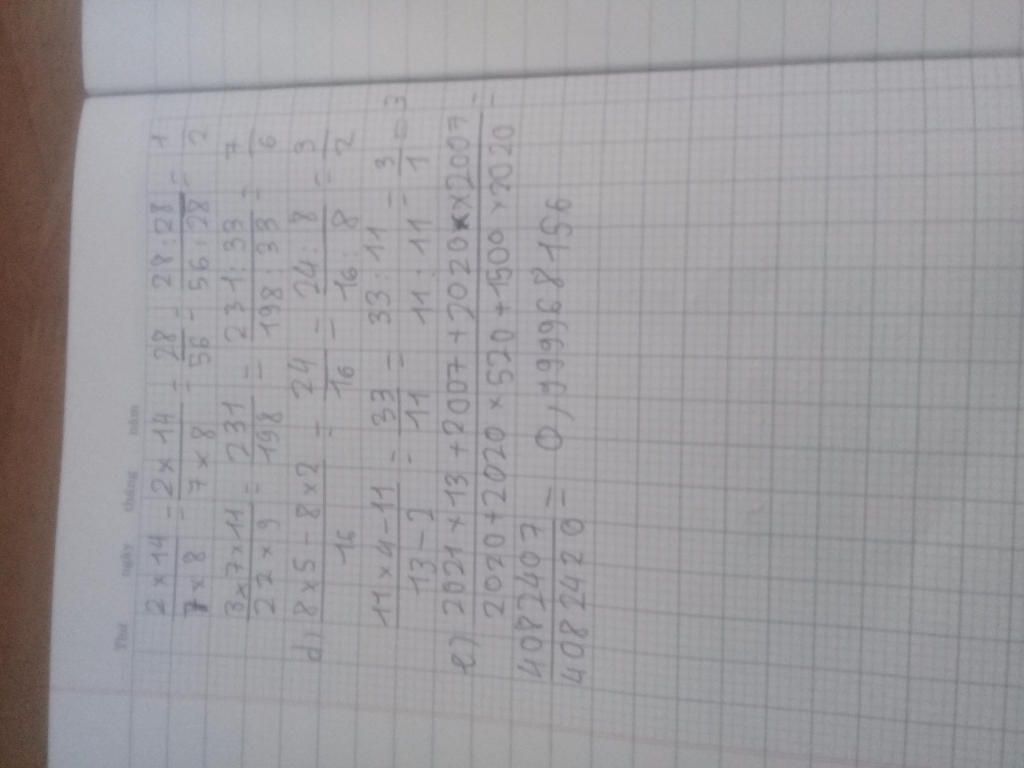 Thứ ngày tháng năm
2 x 14 / 7 x 8 = 2 x 14 / 7 x 8 = 28 / 56 = 28 : 28 / 56 : 28 = 1 / 2
3 x 7 x 11 / 22 x 9 = 231 / 198 = 231 : 33 / 198 : 33 = 7 / 6
d) 8 x 5 - 8 x 2 / 16 = 24 / 16 = 24 : 8 / 16 : 8 = 3 / 2
11 x 4 - 11 / 13 - 2 = 33 / 11 = 33 : 11 / 11 : 11 = 3 / 1 = 3
e) 2021 x 13 + 2007 + 2020 x 2007 / 2020 + 2020 x 520 + 1500 x 2020 =
4082407 / 4082420 = 0,9999968156